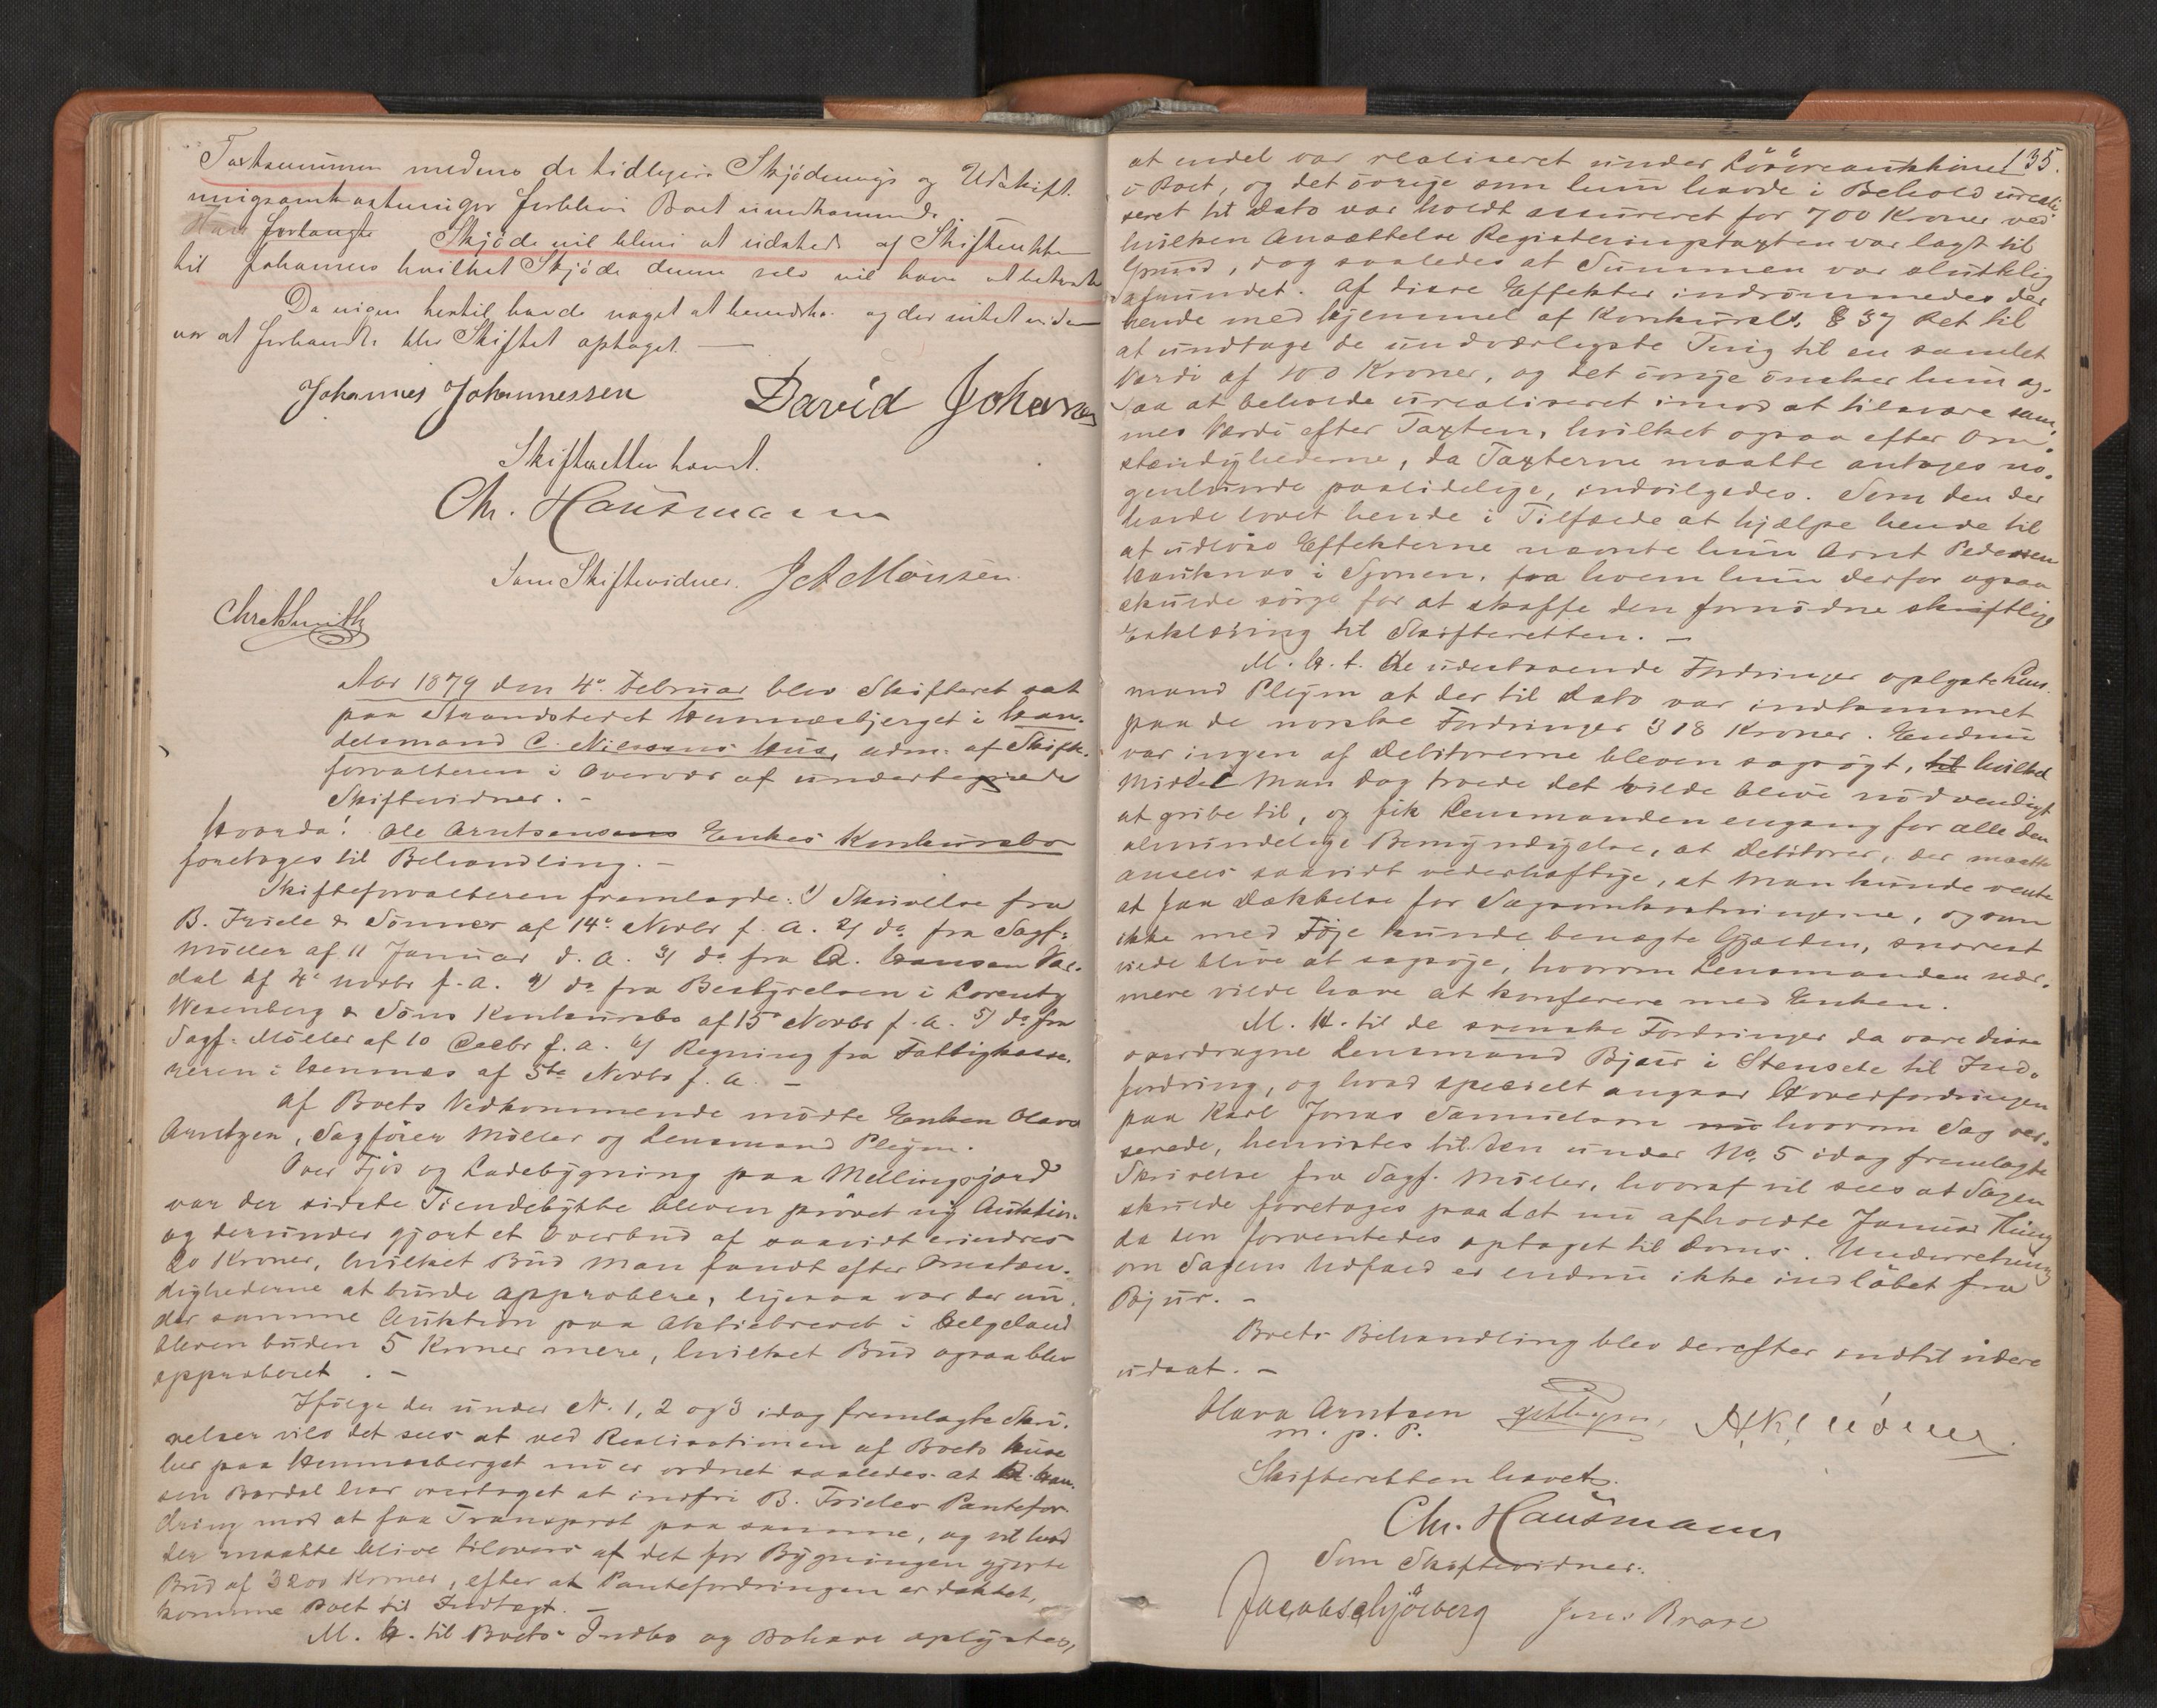 Taxtsummen medens de tidligere Skjødnings og Udskift-
ningsomkostninger forblive Boet uvedkommende
forlangte Skjøde vil blive at udstede af Skifteretten
til Johannes hvilket Skjøde denne selv vil have at bekoste
Da ingen hertil havde noget at bemærke og der intet videre
var at forhandle blev Skiftet optaget —
Johannes Johannessen David Johans
Skifteretten hævet.
Chr. Hausmann
Som Skiftevidner. J A Monsen
Chr A Smith
Aar 1879 den 4de Februar blev Skifteret sat
paa Strandstedet Hemnæsbjerget i Han-
delsmand C. Nilssens Hus, adm. af Skifte-
forvalteren i Overvær af undertegnede
Skiftevidner. –
Hvorda! Ole Arntsens Enkes Konkursbo
foretoges til Behandling. –
Skifteforvalteren fremlagde: 1) Skrivelse fra
B. Friele & Sønner af 14de Novbr f. A. 2) do fra Sagf:
Møller af 11 Januar d. A. 3) do fra A. Hansen Bar-
dal af 4de Novbr f. A. 4) do fra Bestyrelsen i Lorentz
Wesenberg & Søns Konkursbo af 15de Novbr f. A. 5) do fra
Sagf: Møller af 10 Decbr f. A. 6) Regning fra Fattigkasse-
reren i Hemnæs af 5te Novbr f. A. –
Af Boets Vedkommende mødte Enken Olava
Arntzen, Sagfører Møller og Lensmand Pleym.
Over Fjøs og Ladebygning paa Mellingsjord
var der sidste Tiendebytte bleven prøvet ny Auktion
og derunder gjort et Overbud af saavidt erindres
20 Kroner, hvilket Bud man fandt efter Omstæn-
dighederne at burde approbere, ligesaa var der un-
der samme Auktion paa Aktiebrevet i Helgeland
bleven buden 5 Kroner mere, hvilket Bud ogsaa blev
approberet. –
Ifølge de under N. 1, 2 og 3 idag fremlagte Skri-
velser vil det sees at ved Realisationen af Boets Huse
her paa Hemnæsberget nu er ordnet saaledes at A. Han-
sen Bardal har overtaget at indfri B. Frieles Pantefor-
dring mod at faa Transport paa samme, og vil hvad
der maatte blive tilovers af det for Bygningen gjorte
Bud af 3200 Kroner, efter at Pantefordringen er dækket,
komme Boet til Indtægt. –
M. H. til Boets Indbo og Bohave oplystes,
135.
at endel var realiseret under Løsøreauktionen
i Boet, og det øvrige som hun havde i Behold ureali-
seret til Dato var holdt assureret for 700 Kroner ved
hvilken Ansættelse Registreringstaxten var lagt til
Grund, dog saaledes at Summen var sluttelig
afrundet. Af disse Effekter indrømmedes der
hende med Hjemmel af Konkursl. § 37 Ret til
at undtage de undværligste Ting til en samlet
Værdi af 100 Kroner, og det øvrige ønsker hun og-
saa at beholde urealiseret imod at tilsvare sam-
mes Værdi efter Taxten, hvilket ogsaa efter Om-
stændighederne, da Taxterne maatte antages no-
genlunde paalidelige, indvilgedes. Som den der
havde lovet hende i Tilfælde at hjælpe hende til
at udløse Effekterne nævnte hun Arnt Pedersen
Hauknes i Sjonen, fra hvem hun derfor ogsaa
skulde sørge for at skaffe den fornødne skriftlige
Erklæring til Skifteretten. –
M. H. t. de udestaaende Fordringer oplyste Lens-
mand Pleym at der til Dato var indkommet
paa de norske Fordringer 318 Kroner. Endnu
var ingen af Debitorerne bleven sagsøgt, til hvilket
Middel man dog troede det vilde blive nødvendigt
at gribe til, og fik Lensmanden engang for alle den
almindelige Bemyndigelse, at Debitorer, der maatte
ansees saavidt vederhæftige, at man kunde vente
at faa Dækkelse for Sagsomkostningerne, og som
ikke med Føje kunde benægte Gjælden, snarest
vilde blive at sagsøge, hvorom Lensmanden nær-
mere vilde have at konferere med Enken.
M. H. til de svenske Fordringer da vare disse
overdragne Lensmand Bjur i Stensele til Ind-
fordring, og hvad specielt angaar Hovedfordringen
paa Karl Jonas Samuelson nu hvorom Sag ver-
serede, henvistes til den under No. 5 idag fremlagte
Skrivelse fra Sagf. Møller, hvoraf vil sees at Sagen
skulde foretages paa det nu afholdte Januar Thing
da den forventedes optaget til Doms. Underretning
om Sagens Udfald er endnu ikke indløbet fra
Bjur. –
Boets Behandling blev derefter indtil videre
udsat. –
Olava Arntsen
m. p. P.
Skifteretten hævet.
Chr. Hausmann
Som Skiftevidner.
Jacob Schjölberg Jens Brase